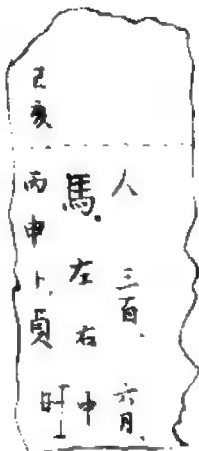 己亥
丙申卜貞
馬左右中
人三百六月